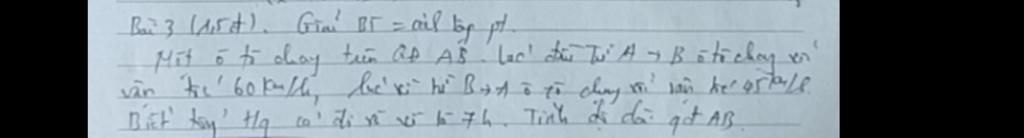 Bài 3 (1,5đ). Giải BT = cách lập pt.
Một ô tô chạy trên qđ AB. Lúc đi từ A → B ô tô chạy với
vận tốc 60 km/h, lúc về từ B → A ô tô chạy với vận tốc 45 km/h.
Biết tg cả đi và về là 7h. Tính độ dài qđ AB.